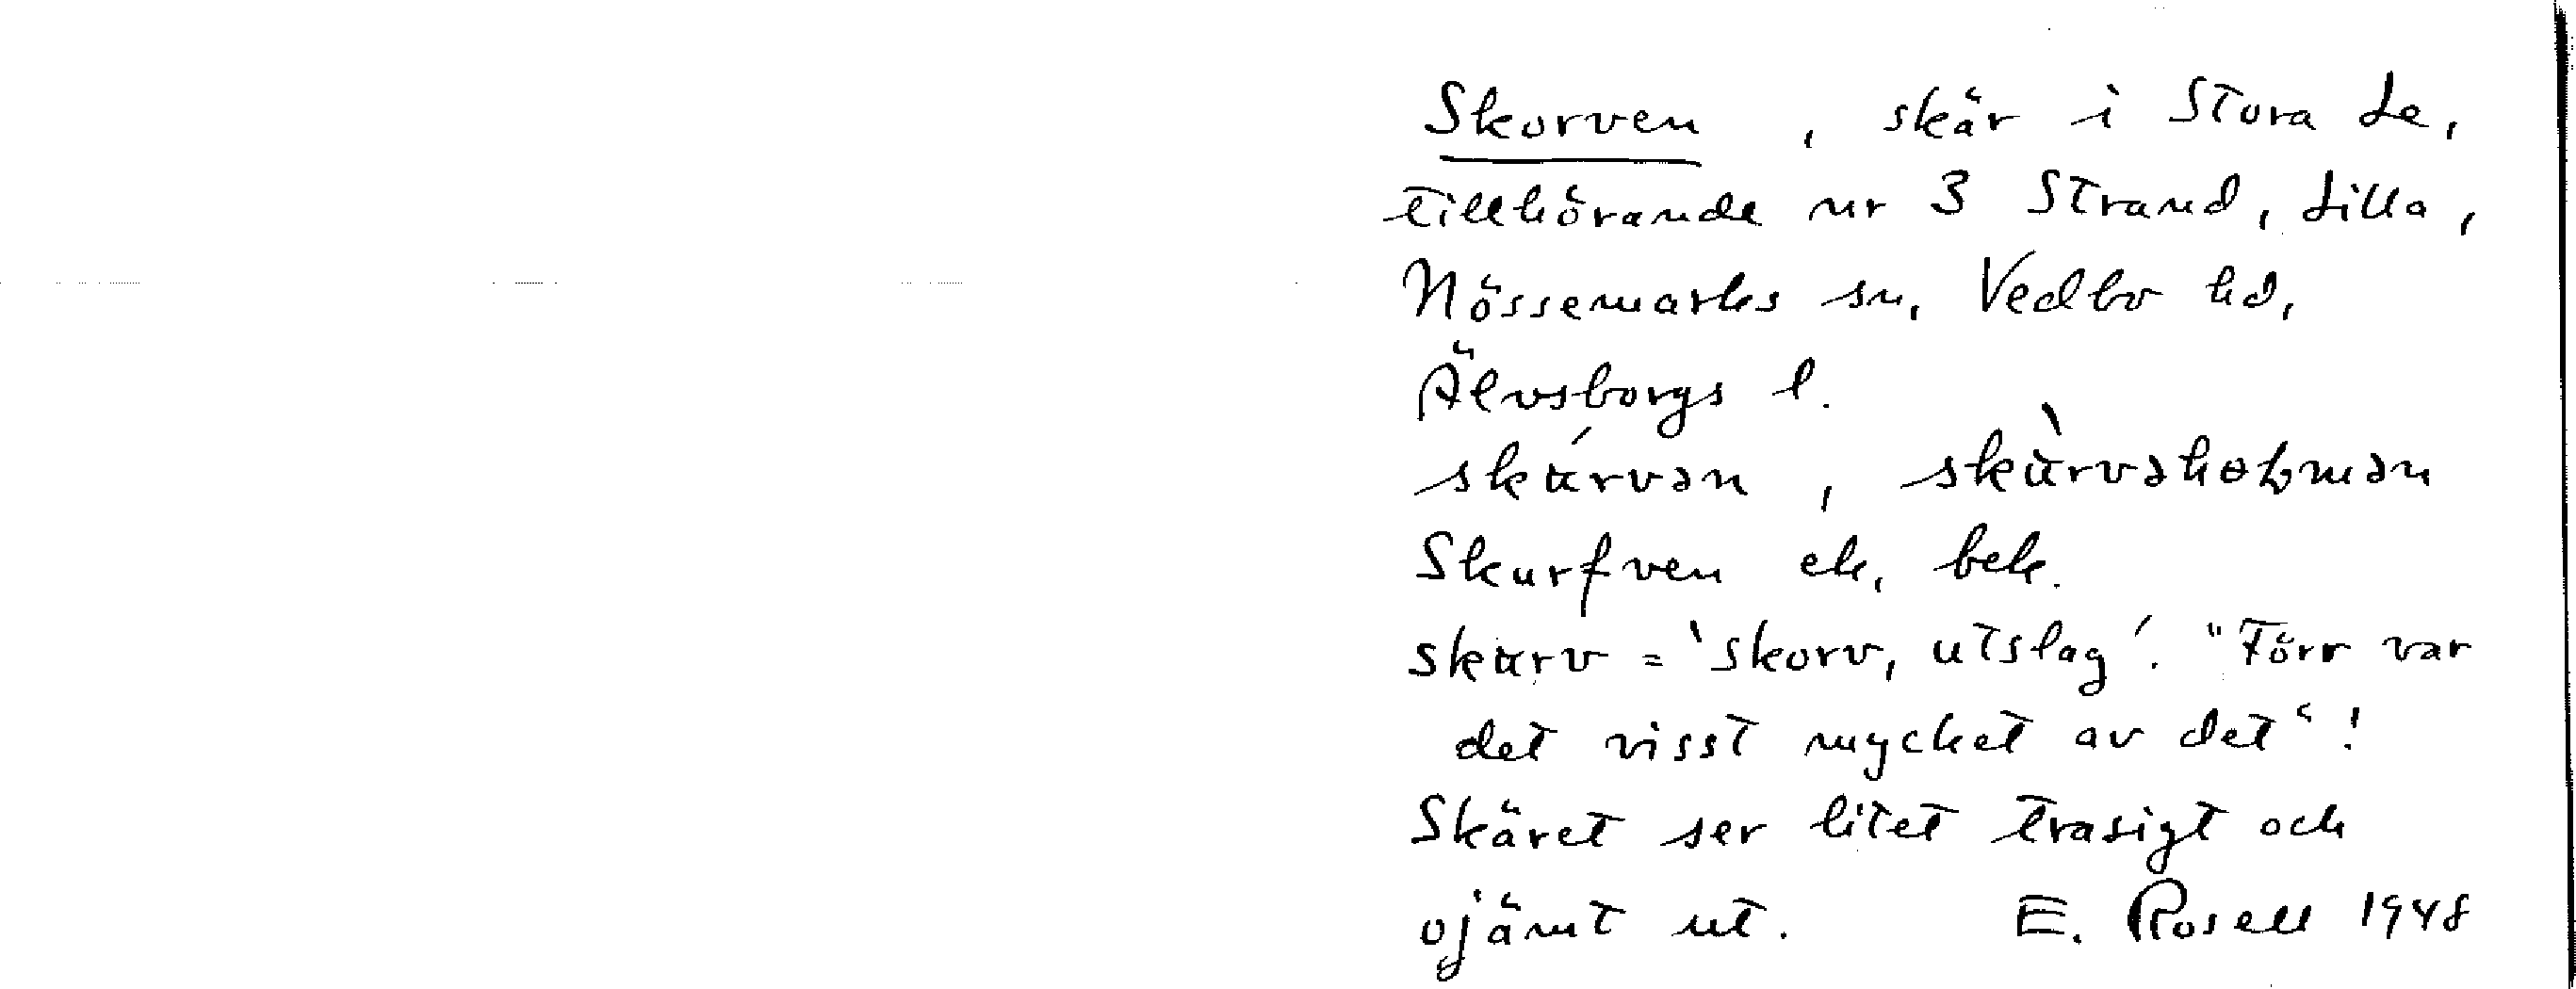 Skorven , skär i Stora Le,
tillhörande nr 3 Strand, Lilla,
Nössemarks sn, Vedbo hd,
Älvsborgs l.
skʉ́rvən , skʉ̀rvəhɵɫmən
Skurfven ek. bek.
skʉrv = 'skorv, utslag'. "Förr var
det visst mycket av det"!
Skäret ser litet trasigt och
ojämt ut. E. Rosell 1948